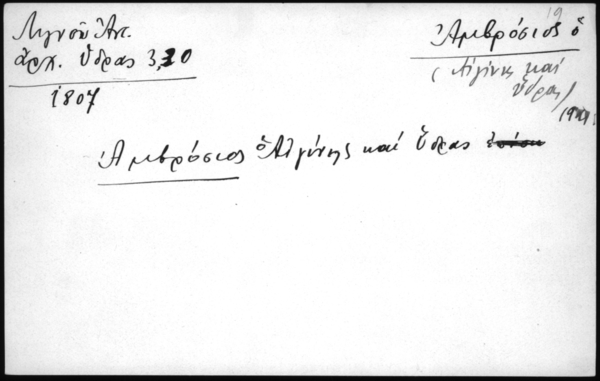 Λιγνοῦ Ἀντ.
ἀρχ. Ὕδρας 3, 20
1807
19
Ἀμβρόσιος ὁ
(Αἰγίνης καί
Ὕδρας)
Ἀμβρόσιος ὁ Αἰγίνης καί Ὕδρας